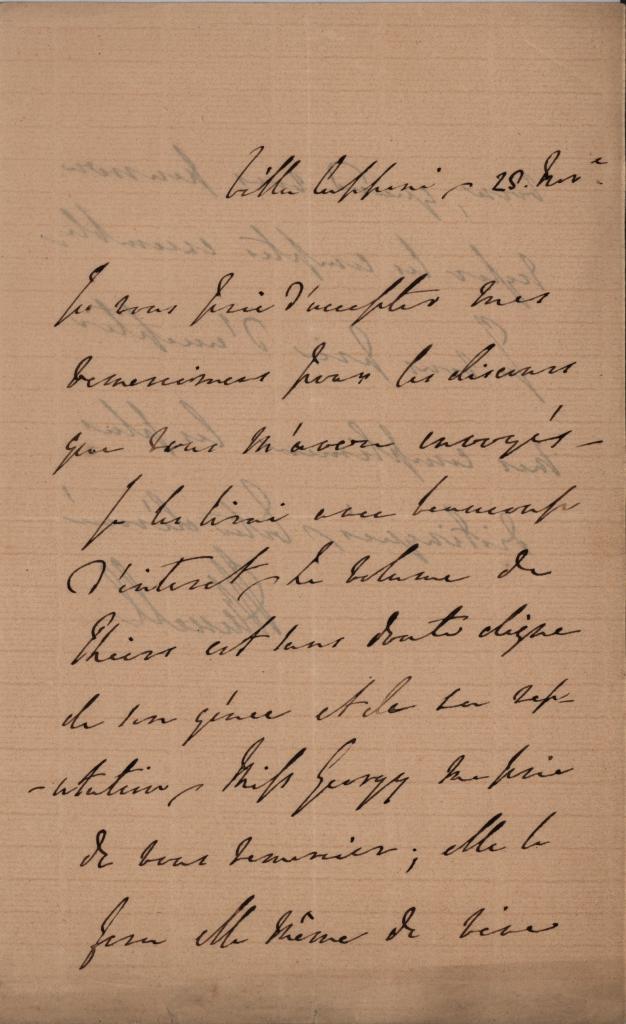 Villa Capponi, 28. Nov.e
Je vous prie d'accepter mes
remerciemens pour les discours
que vous m'avez envoyés –
Je les lirai avec beaucoup
d'interet, le volume de
Thiers est sans doute digne
de son génie et de sa rep-
-utation, Miss Georgy me prie
de vous remercier ; elle le
fera elle même de vive